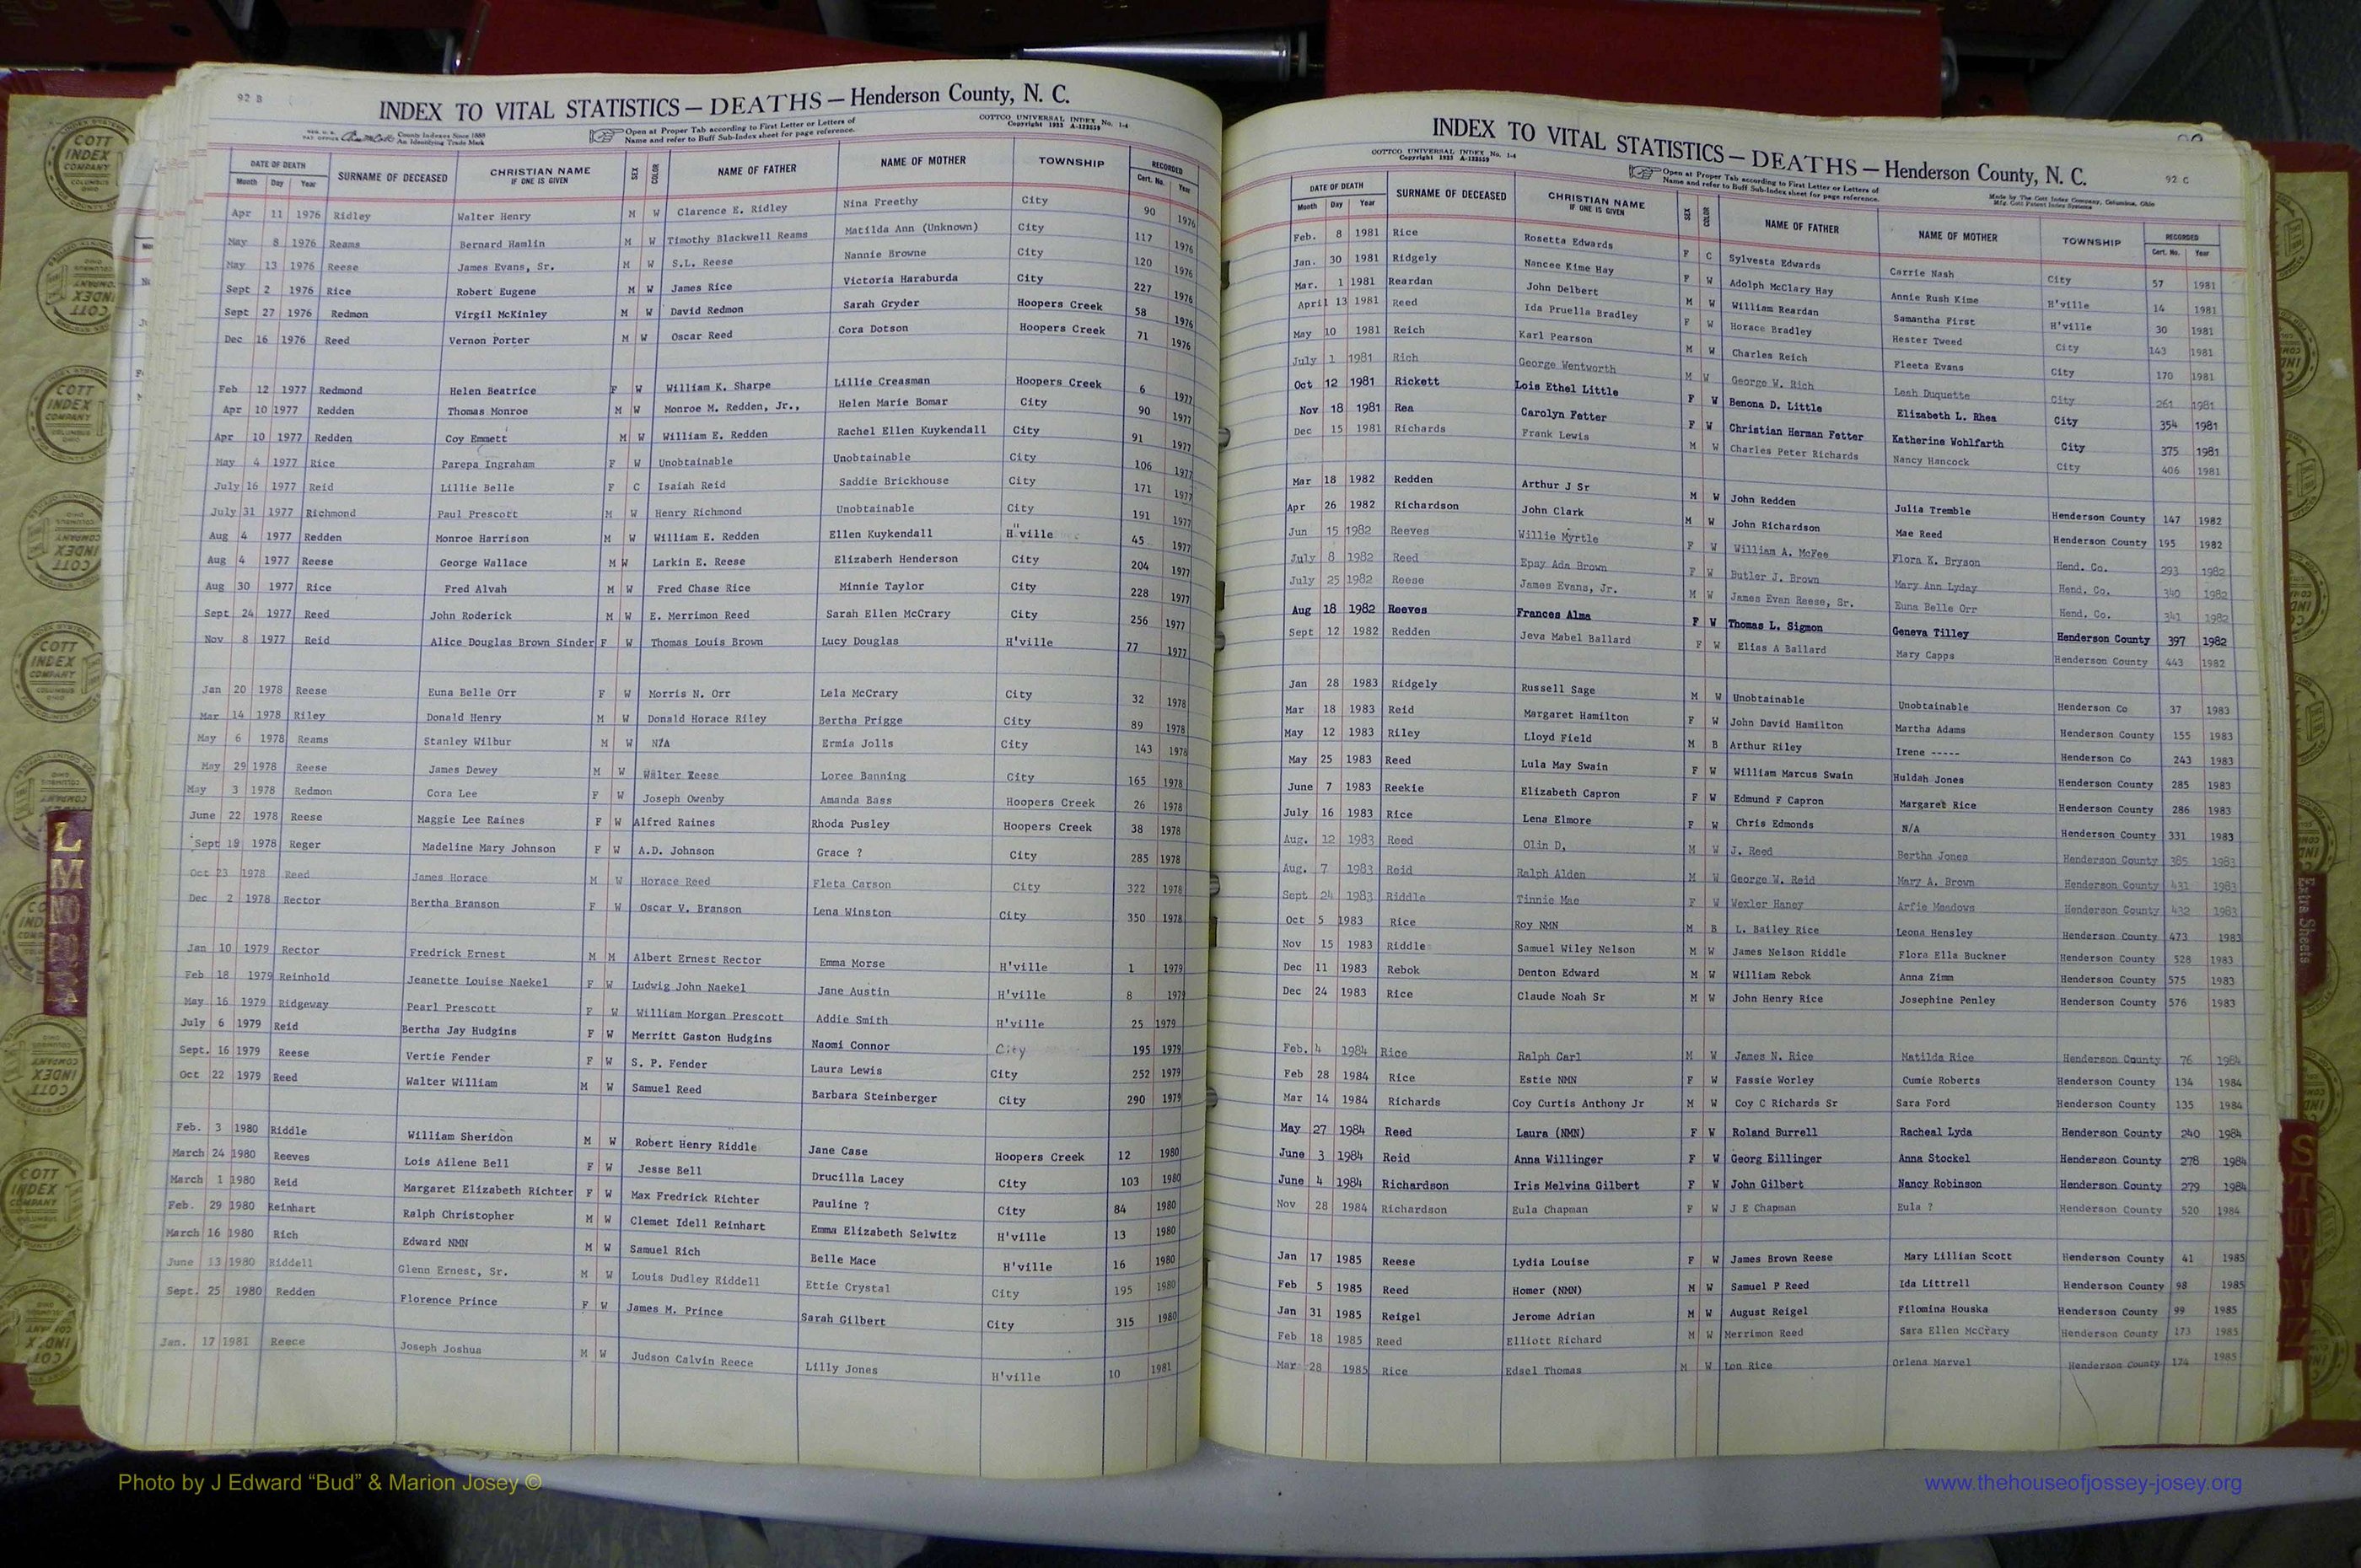 92 B
INDEX TO VITAL STATISTICS — DEATHS — Henderson County, N. C.
County Indexes Since 1888
An Identifying Trade Mark
Open at Proper Tab according to First Letter or Letters of
Name and refer to Buff Sub-Index sheet for page reference.
COTTCO UNIVERSAL INDEX No. 1-4
Copyright 1933 A-123559
DATE OF DEATH SURNAME OF DECEASED CHRISTIAN NAME IF ONE IS GIVEN SEX COLOR NAME OF FATHER NAME OF MOTHER TOWNSHIP RECORDED
Month Day Year Cert. No. Year
Apr 11 1976 Ridley Walter Henry M W Clarence E. Ridley Nina Freethy City 90 1976
May 8 1976 Reams Bernard Hamlin M W Timothy Blackwell Reams Matilda Ann (Unknown) City 117 1976
May 13 1976 Reese James Evans, Sr. M W S.L. Reese Nannie Browne City 120 1976
Sept 2 1976 Rice Robert Eugene M W James Rice Victoria Haraburda City 227 1976
Sept 27 1976 Redmon Virgil McKinley M W David Redmon Sarah Gryder Hoopers Creek 58 1976
Dec 16 1976 Reed Vernon Porter M W Oscar Reed Cora Dotson Hoopers Creek 71 1976
Feb 12 1977 Redmond Helen Beatrice F W William K. Sharpe Lillie Creasman Hoopers Creek 6 1977
Apr 10 1977 Redden Thomas Monroe M W Monroe M. Redden, Jr., Helen Marie Bomar City 90 1977
Apr 10 1977 Redden Coy Emmett M W William E. Redden Rachel Ellen Kuykendall City 91 1977
May 4 1977 Rice Parepa Ingraham F W Unobtainable Unobtainable City 106 1977
July 16 1977 Reid Lillie Belle F C Isaiah Reid Saddie Brickhouse City 171 1977
July 31 1977 Richmond Paul Prescott M W Henry Richmond Unobtainable City 191 1977
Aug 4 1977 Redden Monroe Harrison M W William E. Redden Ellen Kuykendall H"ville 45 1977
Aug 4 1977 Reese George Wallace M W Larkin E. Reese Elizaberh Henderson City 204 1977
Aug 30 1977 Rice Fred Alvah M W Fred Chase Rice Minnie Taylor City 228 1977
Sept 24 1977 Reed John Roderick M W E. Merrimon Reed Sarah Ellen McCrary City 256 1977
Nov 8 1977 Reid Alice Douglas Brown Sinder F W Thomas Louis Brown Lucy Douglas H'ville 77 1977
Jan 20 1978 Reese Euna Belle Orr F W Morris N. Orr Lela McCrary City 32 1978
Mar 14 1978 Riley Donald Henry M W Donald Horace Riley Bertha Prigge City 89 1978
May 6 1978 Reams Stanley Wilbur M W N/A Ermia Jolls City 143 1978
May 29 1978 Reese James Dewey M W Walter Reese Loree Banning City 165 1978
May 3 1978 Redmon Cora Lee F W Joseph Owenby Amanda Bass Hoopers Creek 26 1978
June 22 1978 Reese Maggie Lee Raines F W Alfred Raines Rhoda Pusley Hoopers Creek 38 1978
Sept 19 1978 Reger Madeline Mary Johnson F W A.D. Johnson Grace ? City 285 1978
Oct 23 1978 Reed James Horace M W Horace Reed Fleta Carson City 322 1978
Dec 2 1978 Rector Bertha Branson F W Oscar V. Branson Lena Winston City 350 1978
Jan 10 1979 Rector Fredrick Ernest M M Albert Ernest Rector Emma Morse H'ville 1 1979
Feb 18 1979 Reinhold Jeanette Louise Naekel F W Ludwig John Naekel Jane Austin H'ville 8 1979
May 16 1979 Ridgeway Pearl Prescott F W William Morgan Prescott Addie Smith H'ville 25 1979
July 6 1979 Reid Bertha Jay Hudgins F W Merritt Gaston Hudgins Naomi Connor City 195 1979
Sept. 16 1979 Reese Vertie Fender F W S. P. Fender Laura Lewis City 252 1979
Oct 22 1979 Reed Walter William M W Samuel Reed Barbara Steinberger City 290 1979
Feb. 3 1980 Riddle William Sheridon M W Robert Henry Riddle Jane Case Hoopers Creek 12 1980
March 24 1980 Reeves Lois Ailene Bell F W Jesse Bell Drucilla Lacey City 103 1980
March 1 1980 Reid Margaret Elizabeth Richter F W Max Fredrick Richter Pauline ? City 84 1980
Feb. 29 1980 Reinhart Ralph Christopher M W Clemet Idell Reinhart Emma Elizabeth Selwitz H'ville 13 1980
March 16 1980 Rich Edward NMN M W Samuel Rich Belle Mace H'ville 16 1980
June 13 1980 Riddell Glenn Ernest, Sr. M W Louis Dudley Riddell Ettie Crystal City 195 1980
Sept. 25 1980 Redden Florence Prince F W James M. Prince Sarah Gilbert City 315 1980
Jan. 17 1981 Reece Joseph Joshua M W Judson Calvin Reece Lilly Jones H'ville 10 1981
INDEX TO VITAL STATISTICS — DEATHS — Henderson County, N. C.
92 C
COTTCO UNIVERSAL INDEX No. 1-4
Copyright 1933 A-123559
Open at Proper Tab according to First Letter or Letters of
Name and refer to Buff Sub-Index sheet for page reference.
Made by The Cott Index Company, Columbus, Ohio
Mfg. Cott Patent Index Systems
DATE OF DEATH SURNAME OF DECEASED CHRISTIAN NAME IF ONE IS GIVEN SEX COLOR NAME OF FATHER NAME OF MOTHER TOWNSHIP RECORDED
Month Day Year Cert. No. Year
Feb. 8 1981 Rice Rosetta Edwards F C Sylvesta Edwards Carrie Nash City 57 1981
Jan. 30 1981 Ridgely Nancee Kime Hay F W Adolph McClary Hay Annie Rush Kime H'ville 14 1981
Mar. 1 1981 Reardan John Delbert M W William Reardan Samantha First H'ville 30 1981
April 13 1981 Reed Ida Pruella Bradley F W Horace Bradley Hester Tweed City 143 1981
May 10 1981 Reich Karl Pearson M W Charles Reich Fleeta Evans City 170 1981
July 1 1981 Rich George Wentworth M W George W. Rich Leah Duquette City 261 1981
Oct 12 1981 Rickett Lois Ethel Little F W Benona D. Little Elizabeth L. Rhea City 354 1981
Nov 18 1981 Rea Carolyn Fetter F W Christian Herman Fetter Katherine Wohlfarth City 375 1981
Dec 15 1981 Richards Frank Lewis M W Charles Peter Richards Nancy Hancock City 406 1981
Mar 18 1982 Redden Arthur J Sr M W John Redden Julia Tremble Henderson County 147 1982
Apr 26 1982 Richardson John Clark M W John Richardson Mae Reed Henderson County 195 1982
Jun 15 1982 Reeves Willie Myrtle F W William A. McFee Flora K. Bryson Hend. Co. 293 1982
July 8 1982 Reed Epsy Ada Brown F W Butler J. Brown Mary Ann Lyday Hend. Co. 340 1982
July 25 1982 Reese James Evans, Jr. M W James Evan Reese, Sr. Euna Belle Orr Hend. Co. 341 1982
Aug 18 1982 Reeves Frances Alma F W Thomas L. Sigmon Geneva Tilley Henderson County 397 1982
Sept 12 1982 Redden Jeva Mabel Ballard F W Elias A Ballard Mary Capps Henderson County 443 1982
Jan 28 1983 Ridgely Russell Sage M W Unobtainable Unobtainable Henderson Co 37 1983
Mar 18 1983 Reid Margaret Hamilton F W John David Hamilton Martha Adams Henderson County 155 1983
May 12 1983 Riley Lloyd Field M B Arthur Riley Irene ----- Henderson Co 243 1983
May 25 1983 Reed Lula May Swain F W William Marcus Swain Huldah Jones Henderson County 285 1983
June 7 1983 Reekie Elizabeth Capron F W Edmund F Capron Margaret Rice Henderson County 286 1983
July 16 1983 Rice Lena Elmore F W Chris Edmonds N/A Henderson County 331 1983
Aug. 12 1983 Reed Olin D. M W J. Reed Bertha Jones Henderson County 385 1983
Aug. 7 1983 Reid Ralph Alden M W George W. Reid Mary A. Brown Henderson County 431 1983
Sept 24 1983 Riddle Tinnie Mae F W Wexler Haney Arfie Meadows Henderson County 432 1983
Oct 5 1983 Rice Roy NMN M B L. Bailey Rice Leona Hensley Henderson County 473 1983
Nov 15 1983 Riddle Samuel Wiley Nelson M W James Nelson Riddle Flora Ella Buckner Henderson County 528 1983
Dec 11 1983 Rebok Denton Edward M W William Rebok Anna Zimm Henderson County 575 1983
Dec 24 1983 Rice Claude Noah Sr M W John Henry Rice Josephine Penley Henderson County 576 1983
Feb. 4 1984 Rice Ralph Carl M W James N. Rice Matilda Rice Henderson County 76 1984
Feb 28 1984 Rice Estie NMN F W Fassie Worley Cumie Roberts Henderson County 134 1984
Mar 14 1984 Richards Coy Curtis Anthony Jr M W Coy C Richards Sr Sara Ford Henderson County 135 1984
May 27 1984 Reed Laura (NMN) F W Roland Burrell Racheal Lyda Henderson County 240 1984
June 3 1984 Reid Anna Willinger F W Georg Eillinger Anna Stockel Henderson County 278 1984
June 4 1984 Richardson Iris Melvina Gilbert F W John Gilbert Nancy Robinson Henderson County 279 1984
Nov 28 1984 Richardson Eula Chapman F W J E Chapman Eula ? Henderson County 520 1984
Jan 17 1985 Reese Lydia Louise F W James Brown Reese Mary Lillian Scott Henderson County 41 1985
Feb 5 1985 Reed Homer (NMN) M W Samuel P Reed Ida Littrell Henderson County 98 1985
Jan 31 1985 Reigel Jerome Adrian M W August Reigel Filomina Houska Henderson County 99 1985
Feb 18 1985 Reed Elliott Richard M W Merrimon Reed Sara Ellen McCrary Henderson County 173 1985
Mar 28 1985 Rice Edsel Thomas M W Lon Rice Orlena Marvel Henderson County 174 1985
COTT INDEX COMPANY COLUMBUS OHIO
L
M
Extra Sheets
S
Photo by J Edward “Bud” & Marion Josey ©
www.thehouseofjossey-josey.org